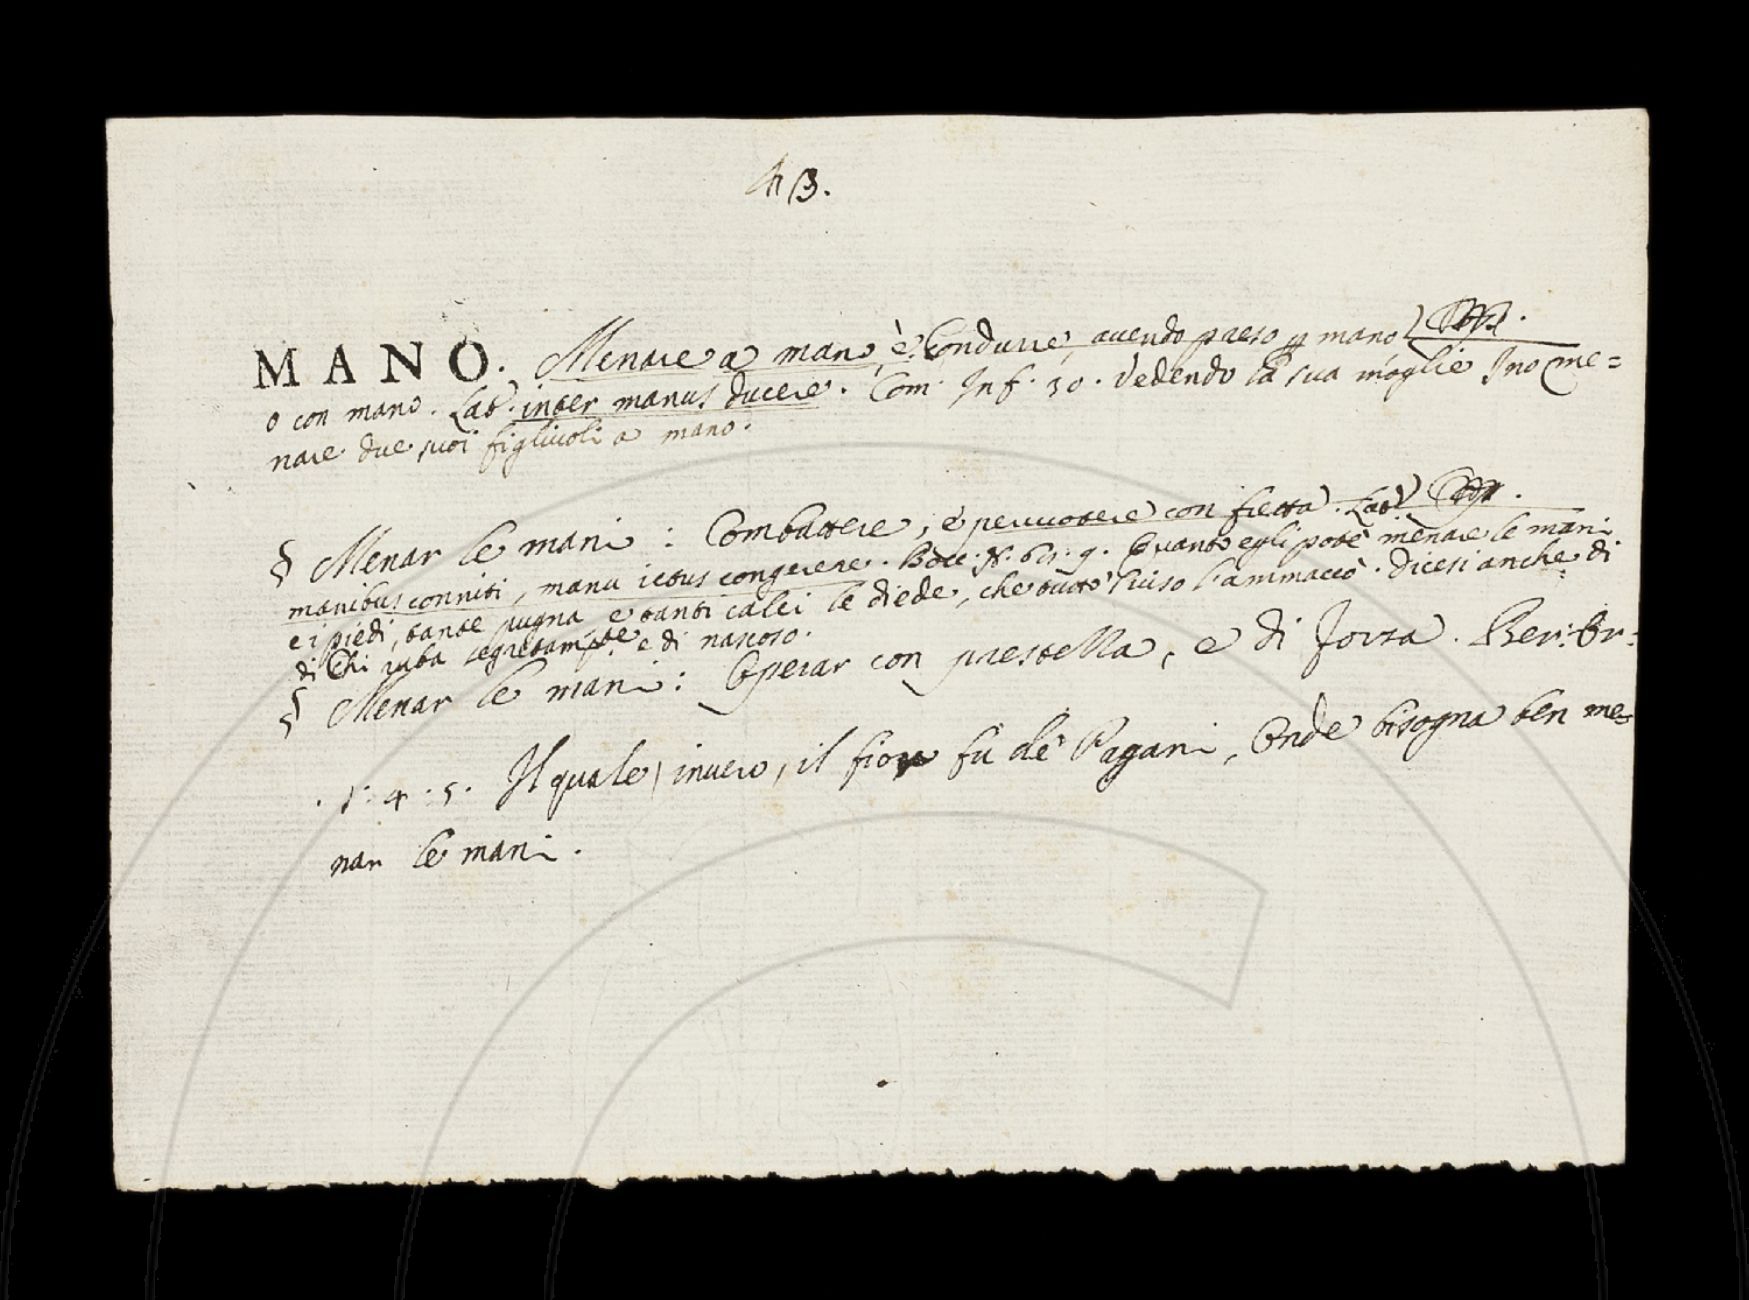 43.
MANO. Menare a mano, è Condurre, avendo preso p mano
o con mano. Lat. inter manus ducere. Com. Inf. 30. Vedendo la sua moglie Ino me=
nare due suoi figliuoli a mano.
§ Menar le mani: Combattere, e percuotere con fretta. Lat.
manibus conniti, manu ictus congerere. Bocc. N. 69. 9. Quanto egli potè menare le mani
e i piedi, tante pugna e tanti calci le diede, che tutto 'l viso l'ammaccò. Dicesi anche di
di Chi ruba segretamte e di nascoso.
§ Menar le mani: Operar con prestezza, e di forza. Ber: Or=
. 1. 4. 5. Il quale, invero, il fior fu de' Pagani, Onde bisogna ben me=
nar le mani.